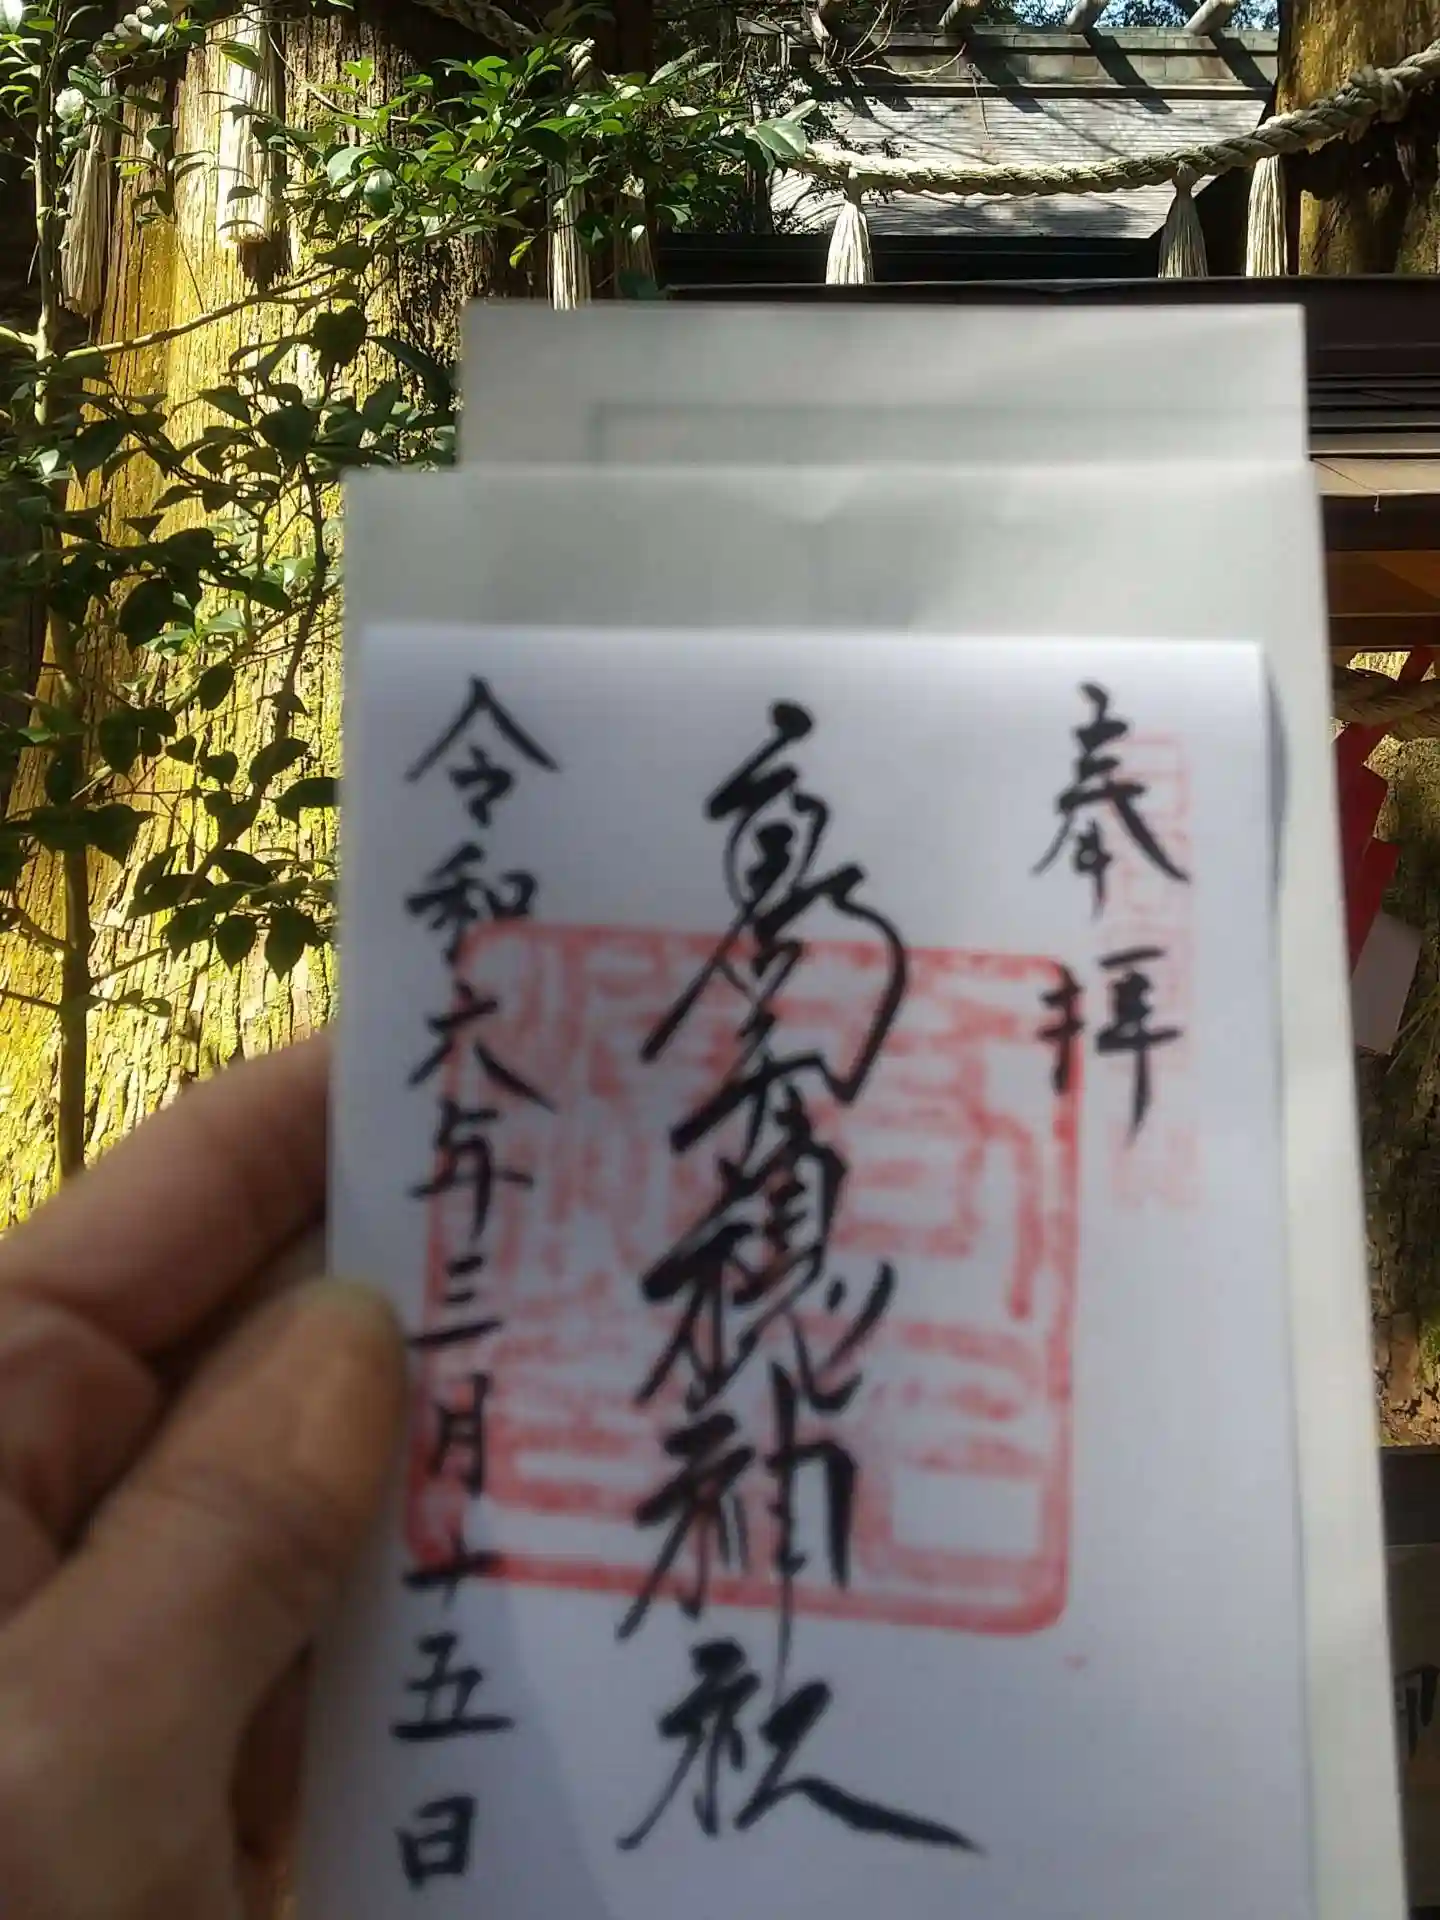 奉拝
高千穂神社
令和六年三月十五日